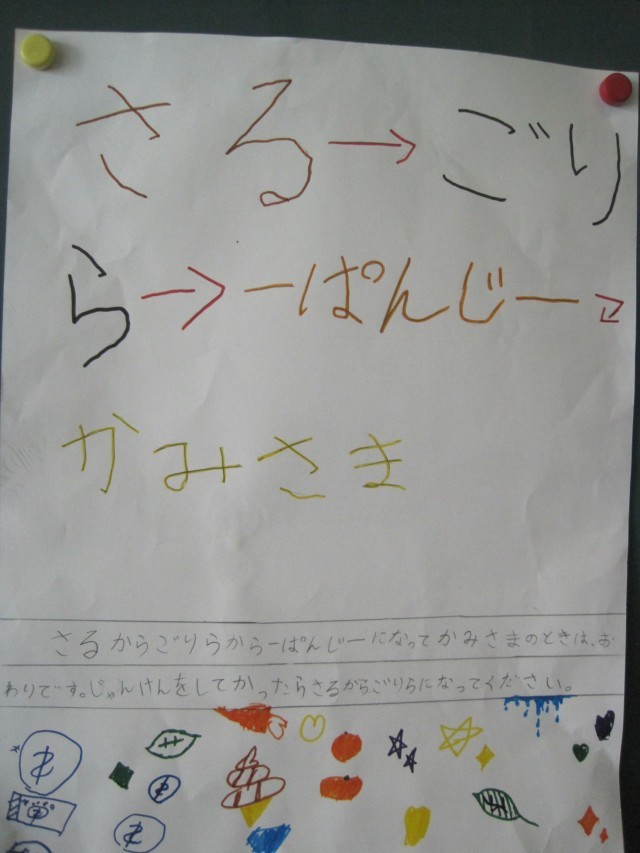 さる→ごり
ら→ーぱんじー→
かみさま
さるからごりらからーぱんじーになってかみさまのときは、お
わりです。じゃんけんをしてかったらさるからごりらになってください。